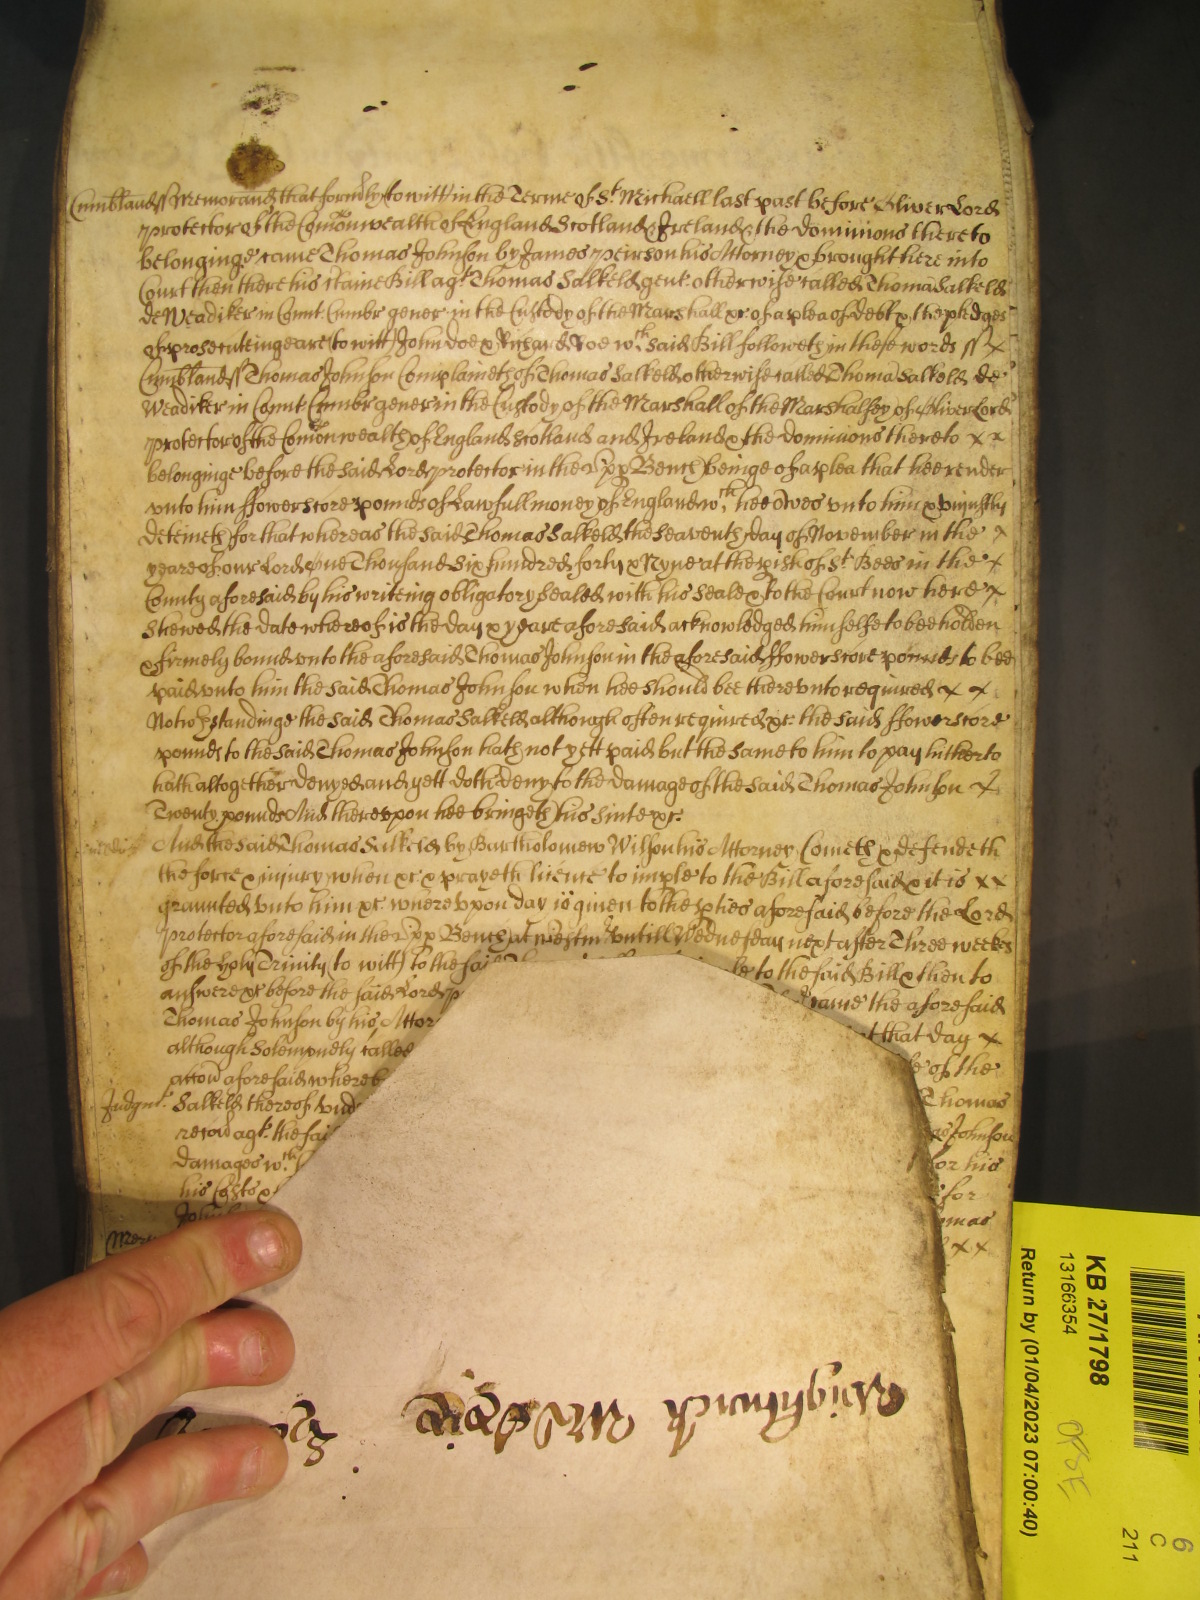 Cumbland ss Memorand that formly (to witt) in the Terme of St. Michaell last past before Oliver Lord
protector of the Comonwealth of England Scotland & Ireland & the dominions thereto
belonginge came Thomas Johnson by James peirson his Attorney & brought here into
Court then there his Bill agt. Thomas Salkeld gent. otherwise called Thoma Salkeld
de Weadiker in Comt. Cumbr gener in the Custody of the Marshall &c. of a plea of debt & the pledges
of prosecuteinge are (to witt) John doe & Richard Roe wch. said Bill followeth in these words ss x
Cumbland ss Thomas Johnson Complaineth of Thomas Salkeld otherwise called Thoma Salkeld de
Weadiker in Comt Cumbr gener in the Custody of the Marshall of the Marshalsey of Oliver Lord
protector of the Comonwealth of England Scotland and Ireland & the dominions thereto x x
belonginge before the said Lord protector in the upp Bench beinge of a plea that hee render
vnto him ffowerscore pounds of Lawfull money of England wch. hee owes vnto him & vniustly
deteineth for that whereas the said Thomas Salkeld the Seaventh day of November in the x
yeare of our Lord one Thousand Six hundred forty & Nyne at the pish of St. Bees in the x
County aforesaid by his writeing obligatory Sealed with his Seale & to the Court now here x
Shewed the date whereof is the day & yeare aforesaid acknowledged himselfe to bee holden
& firmely bound vnto the aforesaid Thomas Johnson in the aforesaid ffowerscore pounds to bee
paid vnto him the said Thomas Johnson when hee should bee therevnto required x x
Notwthstandinge the said Thomas Salkeld although often required &c. the said ffowerscore
pounds to the said Thomas Johnson hath not yett paid but the same to him to pay hitherto
hath altogether denyed and yett doth deny to the damage of the said Thomas Johnson x
Twenty pounds And therevpon hee bringeth his Suite &c.
And the said Thomas Salkeld by Bartholomew Wilson his Attorney Cometh & defendeth
the force & iniury when &c. & prayeth licence to imple to the Bill aforesaid & it is x x
graunted vnto him &c. wherevpon day is giuen to the pties aforesaid before the Lord
protector aforesaid in the upp Bench at Westmr. vntill Wednesday next after Three weeks
of the holy Trinity (to witt) to the said to the said Bill & then to
answere &c before the said Lord came the aforesaid
Thomas Johnson by his Attor that day x
although Solempnely called of the
attou aforesaid whereb Thomas
Judgmt. Salkeld thereof vnd as Johnson
recou agt. the sai for his
damages wch. for
his Costs & omas
John x x
Mem
Wightwick
KB 27/1798
13166354
Return by (01/04/2023 07:00:40)
6
C
211